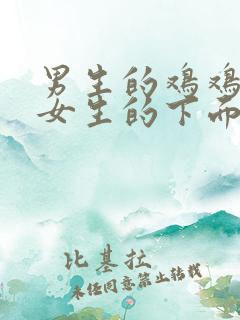 男生的鸡鸡
女生的下面
比基拉
未经同意禁止转载